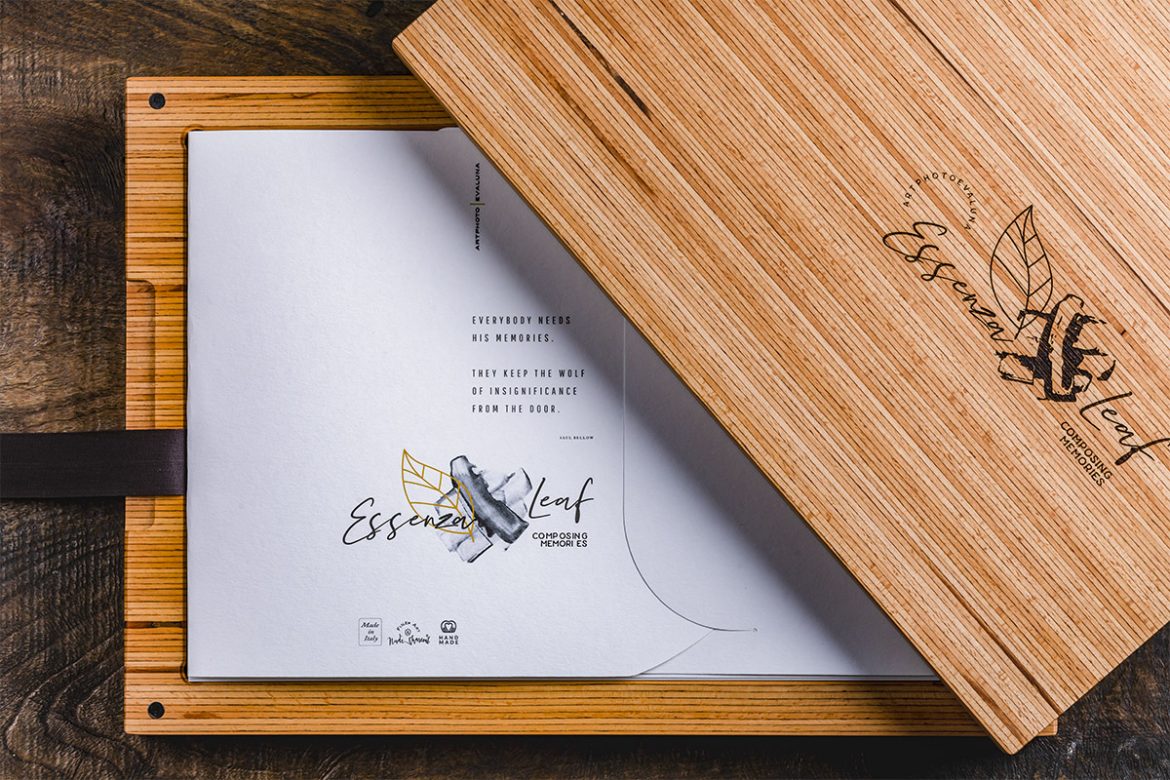 ARTPHOTO | EVALUNA
EVERYBODY NEEDS
HIS MEMORIES.
THEY KEEP THE WOLF
OF INSIGNIFICANCE
FROM THE DOOR.
SAUL BELLOW
Essenza Leaf
COMPOSING
MEMORIES
Made
in
Italy
Fine Art
HAND
MADE
ARTPHOTOEVALUNA
Essenza Leaf
COMPOSING
MEMORIES